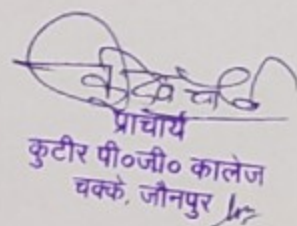 प्राचार्य
कुटीर पी०जी० कालेज
चक्के, जौनपुर